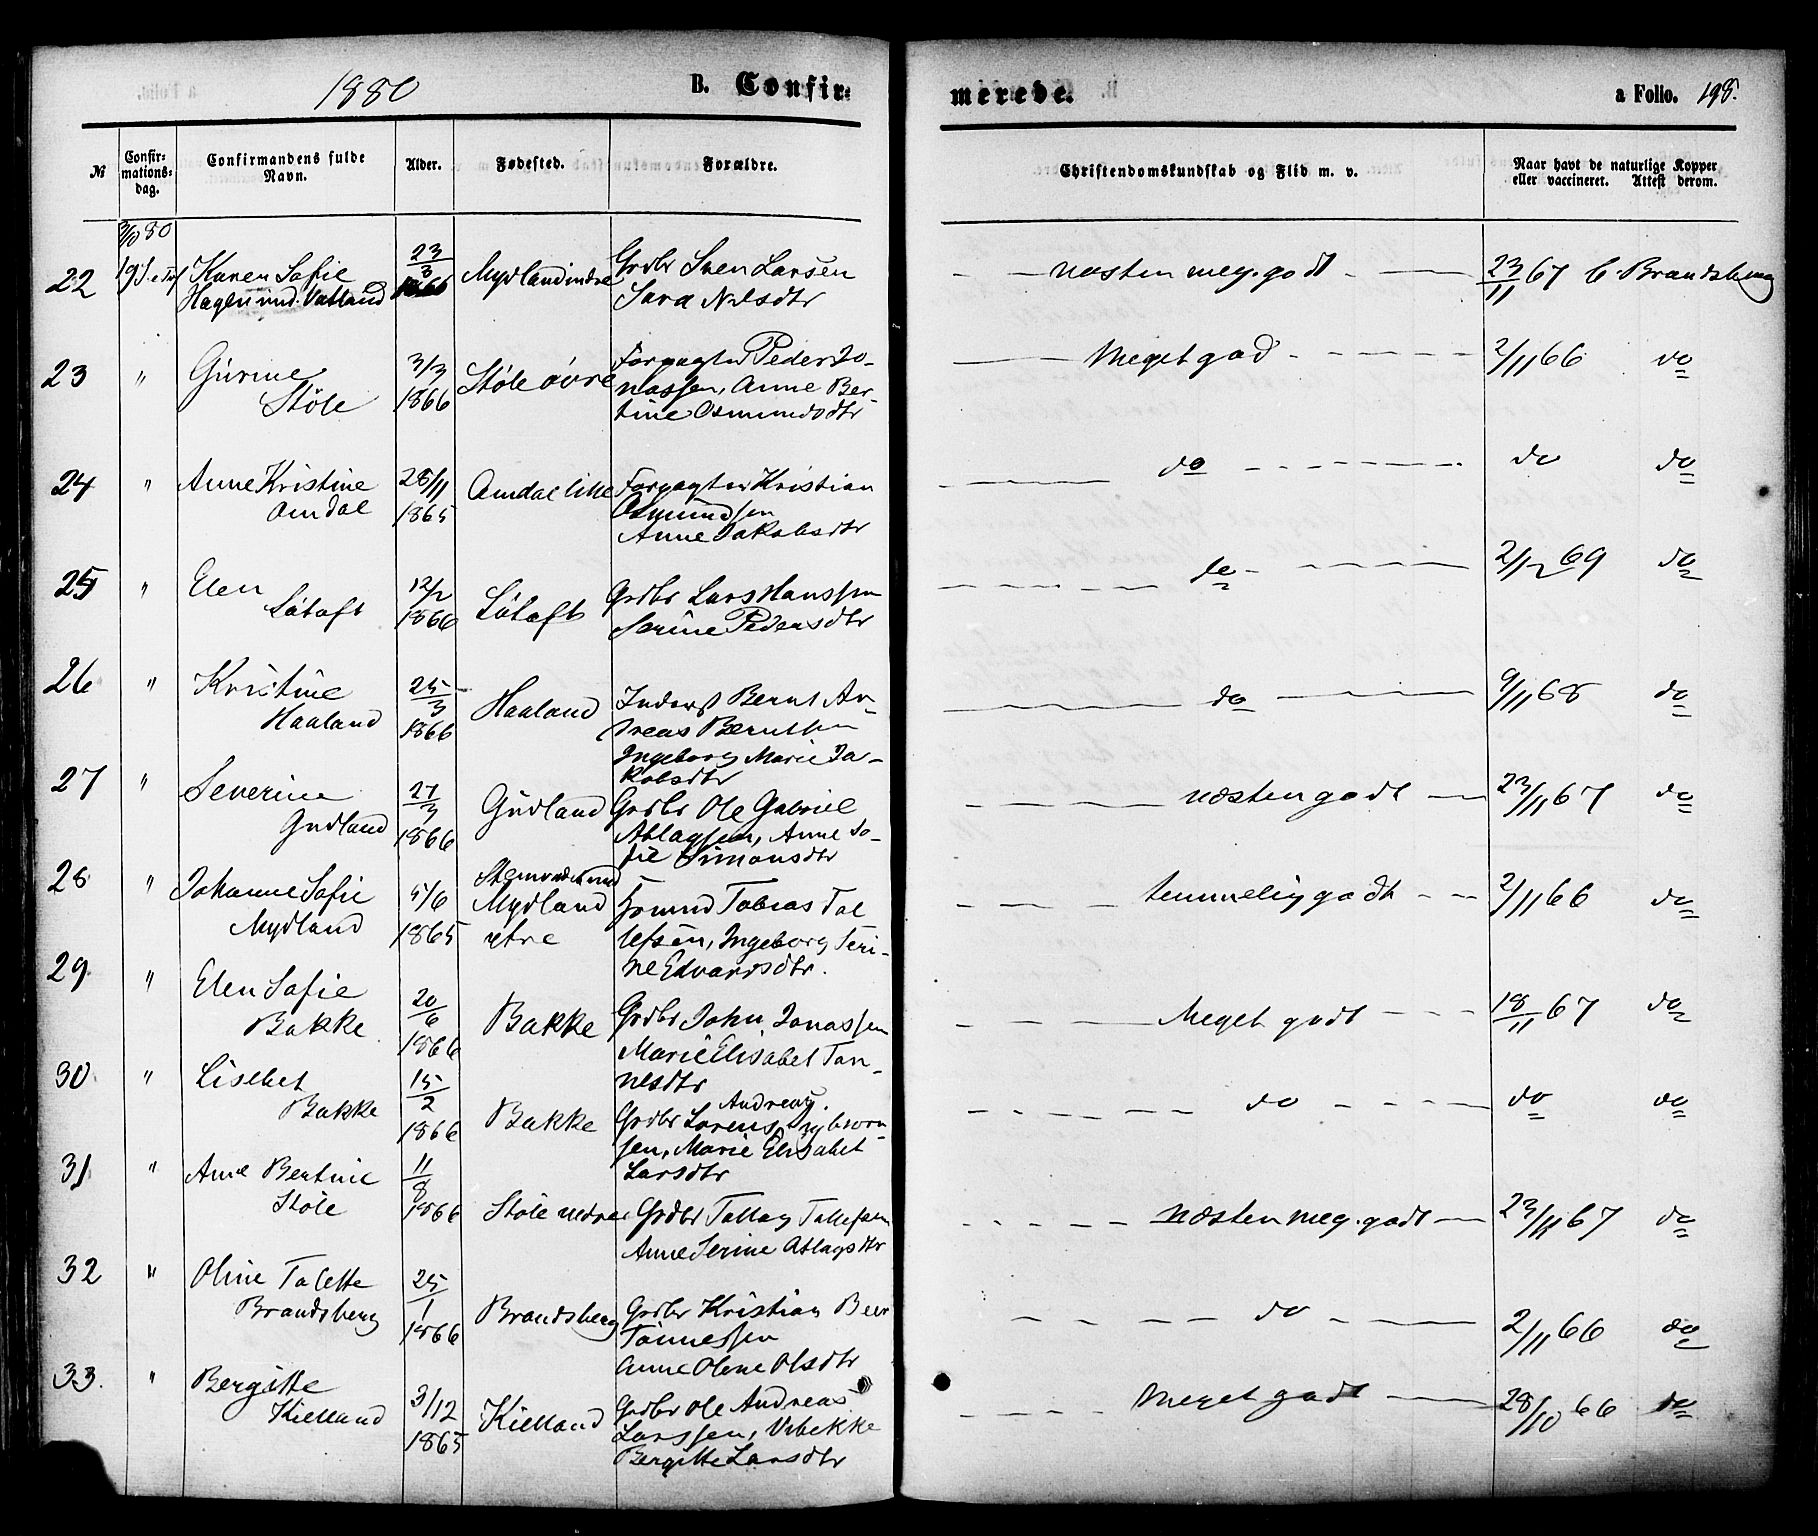 1880
B. Confir-
merede.
a Folio. 198.
№
Confir-
mations-
dag.
Confirmandens fulde
Navn.
Alder.
Fødested.
Forældre.
Christendomskundskab og Flid m. v.
Naar havt de naturlige Kopper
eller vaccineret. Attest derom.
3/10 80
22
Karen Sofie
Vatland
23/3
1866
Mydland indre
Grdbr Sven Larsen
Sara Nilsdtr
næsten meg. godt
23/11 67 C. Brandsberg
23
"
Gurine
Støle
3/3
1866
Støle øvre
Forpagter Peder Jo-
nassen, Anne Ber-
tine Osmundsdtr
Meget god
2/11 66
do
24
"
Anne Kristine
Omdal
28/11
1865
Omdal lille
Forpagter Kristian
Osmundsen
Anne Jakobsdtr
do
do
do
25
"
Elen
Løtoft
12/2
1866
Løtoft
Grdbr Lars Hanssen
Serine Pedersdtr
do
2/12 69
do
26
"
Kristine
Haaland
25/3
1866
Haaland
Inderst Bernt An-
dreas Berntsen
Ingeborg Marie Ja-
kobsdtr
do
9/11 68
do
27
"
Severine
Gudland
27/3
1866
Gudland
Grdbr Ole Gabriel
Atlagsen, Anne So-
fie Simonsdtr
næsten godt
23/11 67
do
28
"
Johanne Sofie
Mydland
5/6
1865
Mydland
ytre
Tobias Tol
lefsen, Ingeborg Seri-
ne Edvardsdtr.
temmelig godt
2/11 66
do
29
"
Elen Sofie
Bakke
20/6
1866
Bakke
Grdbr John Jonassen
Marie Elisabet Tøn-
nesdtr
Meget godt
18/11 67
do
30
"
Lisebet
Bakke
15/2
1866
Bakke
Andreas
Grdbr Lorens
sen, Marie Elisabet
Larsdtr
do
do
do
31
"
Ane Bertine
Støle
11/8
1866
Støle nedre
Grdbr Tollag Tollefsen
Anne Serine Atlagsdtr
næsten meg. godt
23/11 67
do
32
"
Oline Tolette
Brandsberg
25/1
1866
Brandsberg
Grdbr Kristian Beer
Tønnessen
Anne Oline Olsdtr
do
2/11 66
do
33.
"
Bergitte
Kielland
3/12
1865
Kielland
Grdbr Ole Andreas
Larssen, Vibekke
Bergitte Larsdtr
Meget godt
28/10 66
do